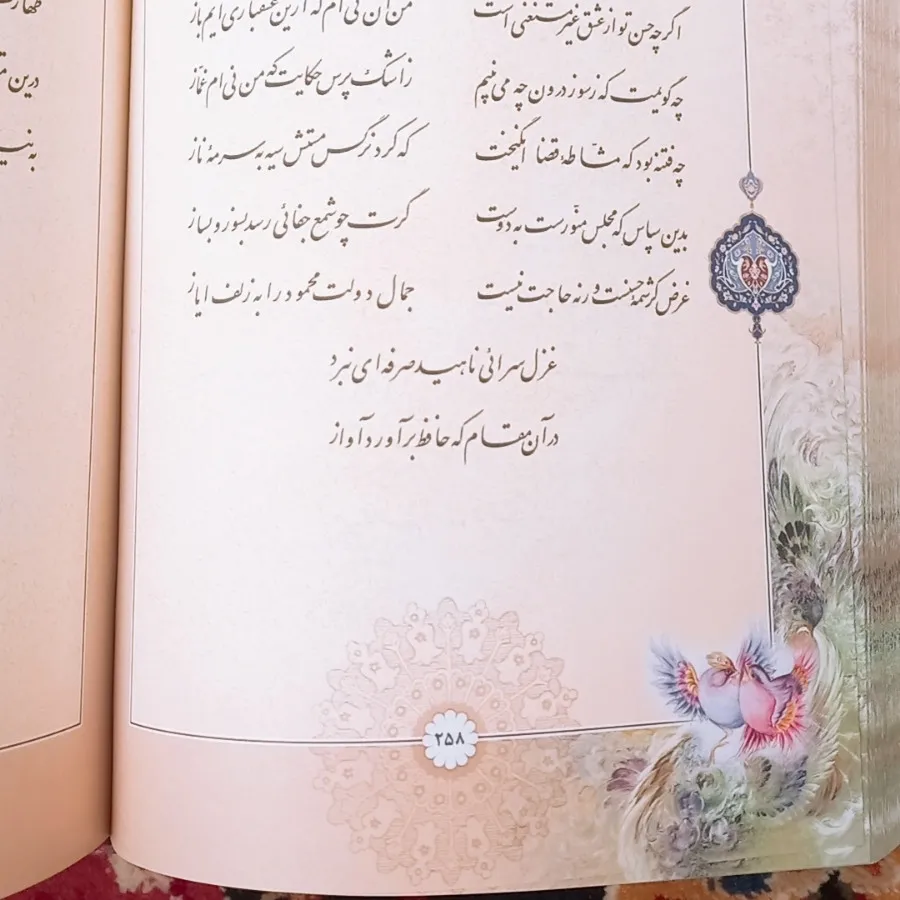 اگرچه حسن تو از عشق غیر مستغنی است من آن نی ام که ازین عشقبازی آیم باز
چه گویمت که ز سوز درون چه می بینم ز اشک پرس حکایت که من نی ام غمّاز
چه فتنه بود که مشّاطهٔ قضا انگیخت که کرد نرگس مستش سیه به سرمهٔ ناز
بدین سپاس که مجلس منوّرست به دوست گرت چو شمع جفائی رسد بسوز و بساز
غرض کرشمهٔ حسنست ورنه حاجت نیست جمال دولت محمود را به زلف ایاز
غزل سرائی ناهید صرفه ای نبرد
در آن مقام که حافظ برآورد آواز
۲۵۸
طهارت
درین
به